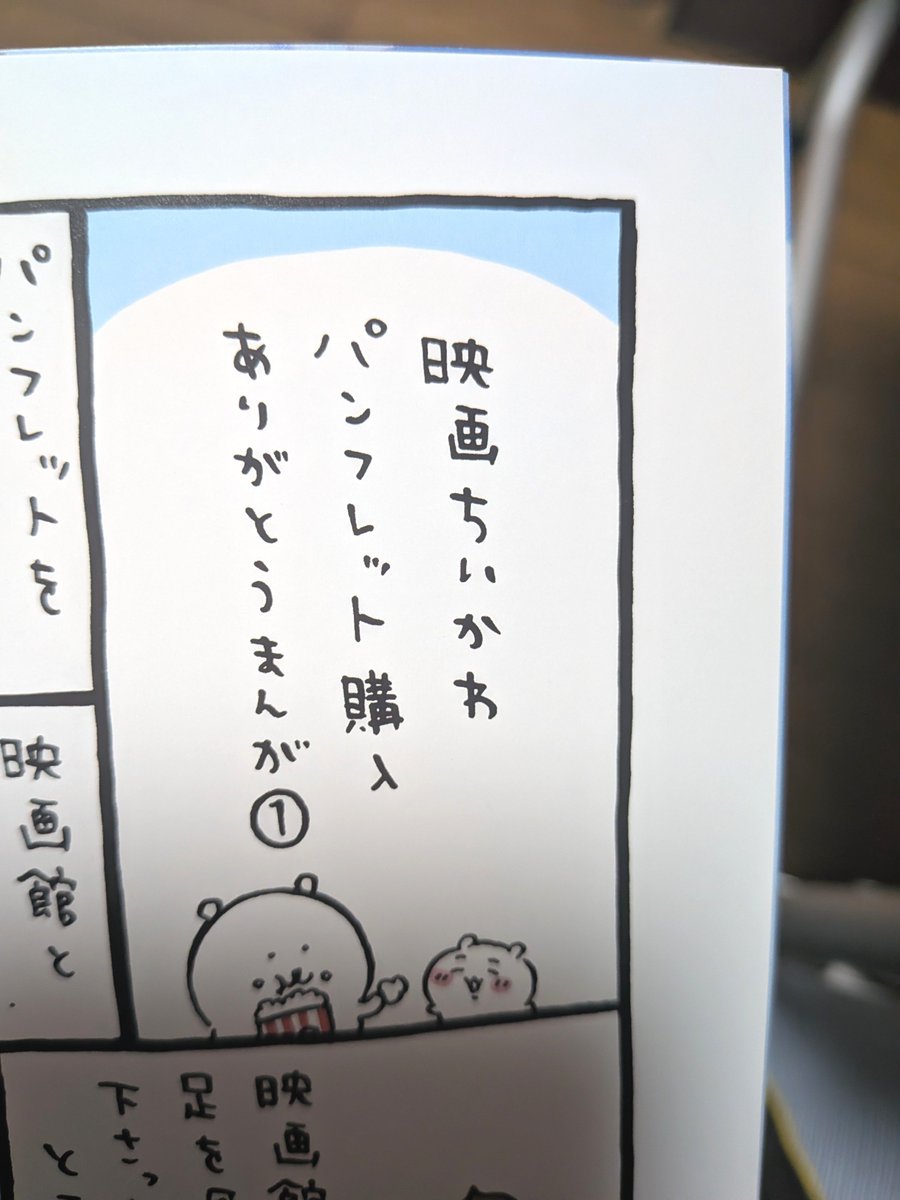 映画ちいかわ
パンフレット購入
ありがとうまんが①
パンフレットを
映画館と
映画館
足を
下さっ
と